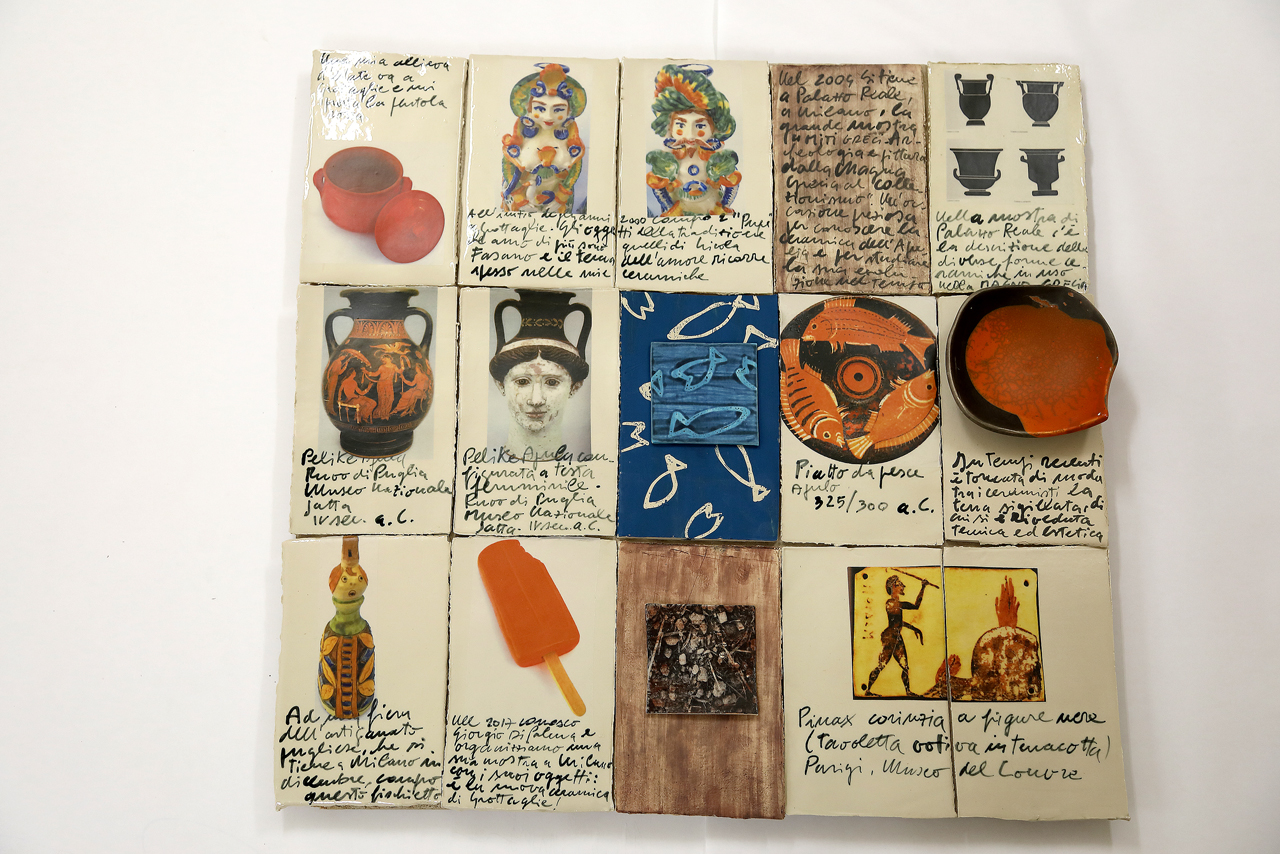 Una mia allieva
d'estate va a
Grottaglie e mi
la
All'inizio degli anni
a Grottaglie. Gli ogge
Fasano e il tema
spesso nelle mie
2000 compro 2 "Pupi"
tti della tradizione
quelli di Nicola
dell'amore ricorre
ceramiche
Nel 2004 si tiene
a Palazzo Reale,
a Milano, la
grande mostra
"MITI GRECI. Ar-
cheologia e pittura
dalla Magna
Grecia al colle-
zionismo". Un'oc-
casione preziosa
per conoscere la
ceramica dell'Apu-
lia e per studiare
la sua evolu-
zione nel tempo
Nella mostra di
Palazzo Reale c'è
la descrizione delle
diverse forme ce-
ramiche in uso
nella MAGNA GRECIA
Pelike
Ruvo di Puglia
Museo Nazionale
Jatta
IV sec. a.C.
Pelike Apula con-
figurata a testa
femminile.
Ruvo di Puglia
Museo Nazionale
Jatta. IV sec. a.C.
Piatto da pesce
Apulo
325/300 a.C.
In tempi recenti
è tornata di moda
tra i ceramisti la
terra sigillata, di
cui si è riveduta
tecnica ed estetica
Ad una fiera
dell'artigianato
pugliese, che si
tiene a Milano in
dicembre, compro
questo fischietto
Nel 2017 conosco
Giorgio Di Palma e
organizziamo una
sua mostra a Milano
con i suoi oggetti:
è la nuova ceramica
di Grottaglie!
Pinax corinzia a figure nere
(tavoletta votiva in terracotta)
Parigi, Museo del Louvre